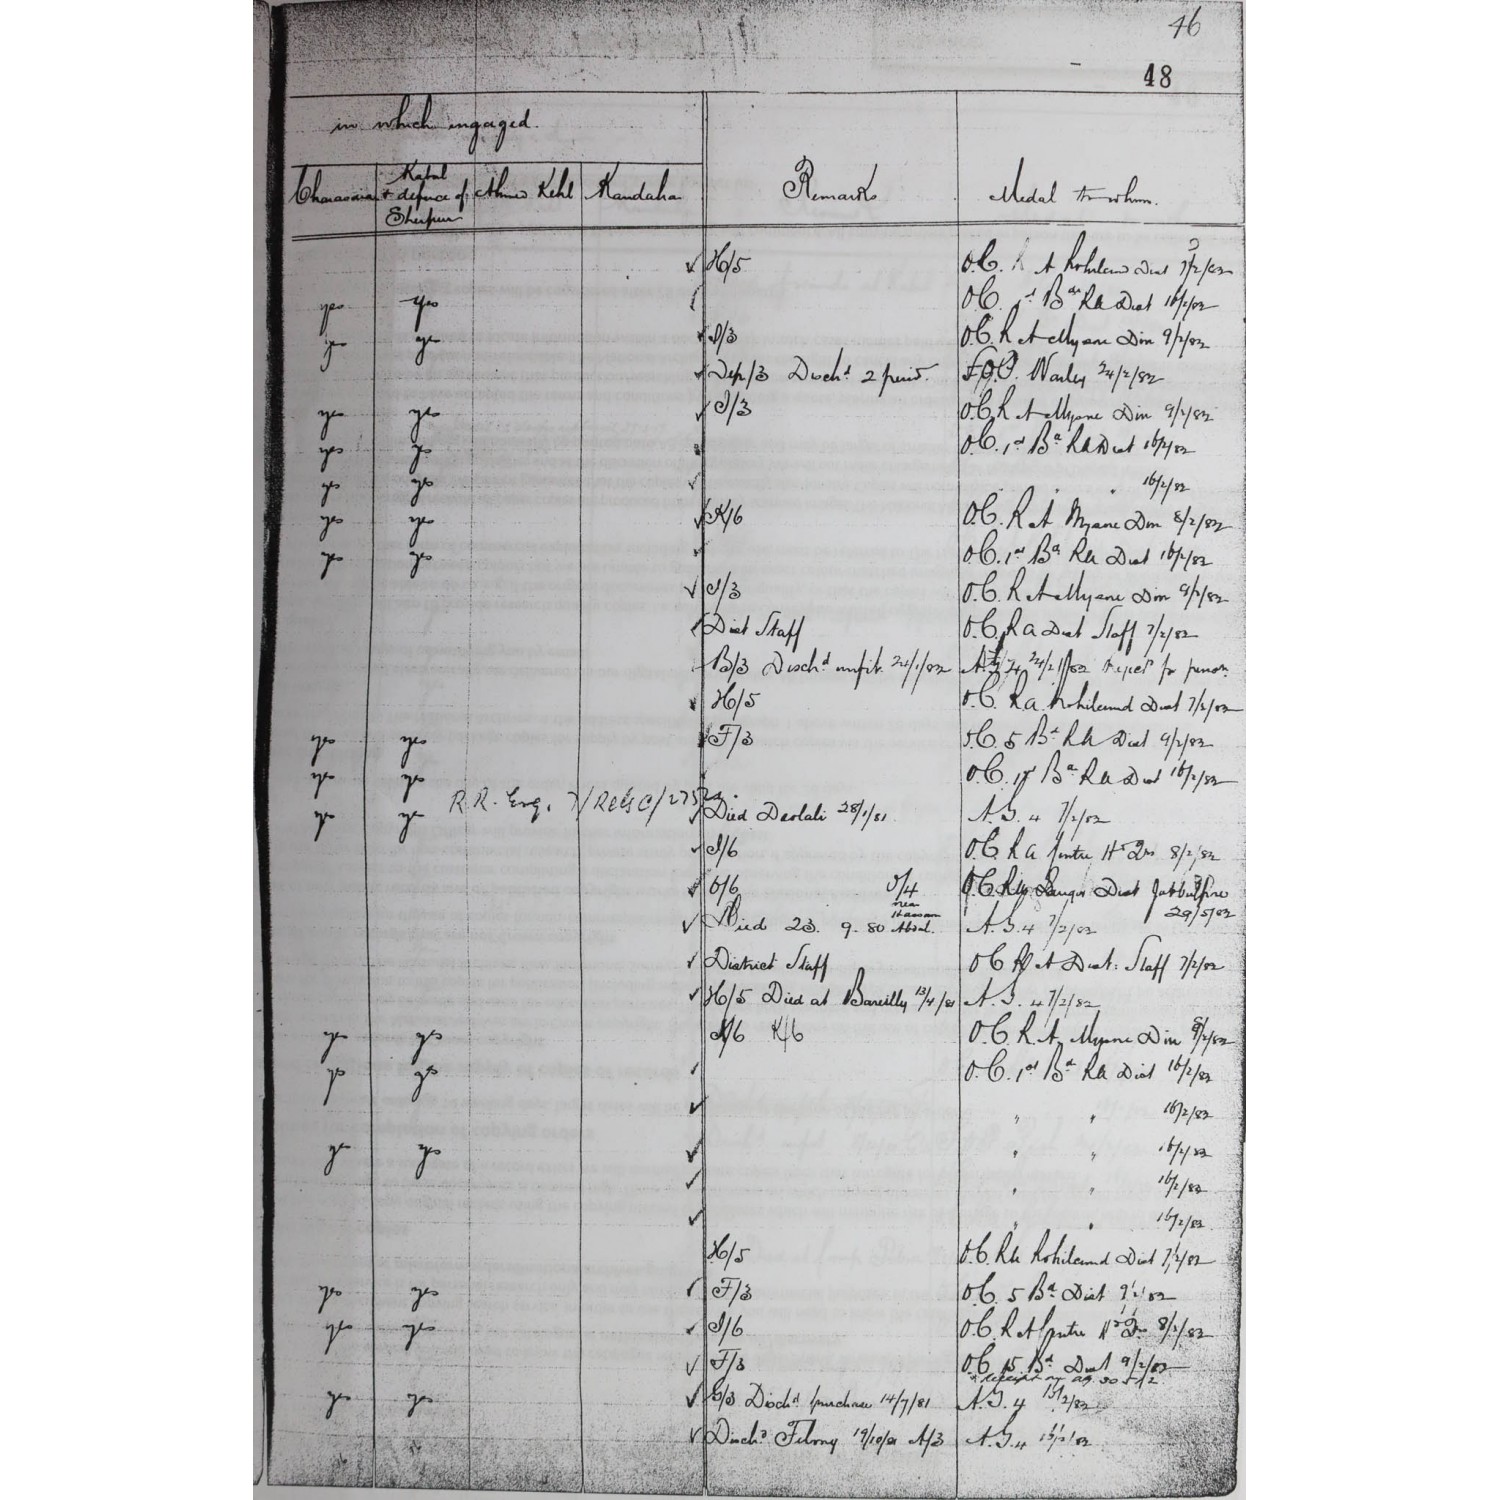 46
48
in which engaged.
Charasiah Kabul & defence of Sherpur Ahmed Kehl Kandahar Remarks Medal to whom.
H/5 O.C. R A Rohilcund Dist 7/2/82
yes yes O.C. 1st Ba RA Dist 16/2/82
yes yes I/3 O.C. R A Mysore Divn 9/2/82
Dep/3 Disch.d 2 period. Warley 24/2/82
yes yes I/3 O.C. R A Mysore Divn 9/2/82
yes yes O.C. 1st Ba RA Dist 16/2/82
yes yes " " 16/2/82
yes yes K/6 O.C. R A Mysore Divn 8/2/82
yes yes O.C. 1st Ba RA Dist 16/2/82
I/3 O.C. R A Mysore Divn 9/2/82
Dist Staff O.C. R A Dist Staff 7/2/82
B/3 Disch.d unfit 24/1/82
H/5 O.C. R.A. Rohilcund Dist 7/2/82
yes yes F/3 O.C. 5 Ba RA Dist 9/2/82
yes yes O.C. 1st Ba RA Dist 16/2/82
R.R. Enq.
yes yes Died Deolali 28/1/81 A.G. 4 7/2/82
I/6 O.C. R A Centre Hd Qrs 8/2/82
O/6 O/4 O.C. Saugor Dist Jubbulpore 29/5/82
Died 23. 9. 80 near Hassan Abdal. A.G. 4 7/2/82
District Staff O C R A Dist: Staff 7/2/82
H/5 Died at Bareilly 13/4/81 A.G. 4 7/2/82
yes yes K/6 O.C. R.A. Mysore Divn 8/2/82
yes yes O.C. 1st Ba RA Dist 16/2/82
" " 16/2/82
yes yes " " 16/2/82
" " 16/2/82
" " 16/2/82
H/5 O.C. RA Rohilcund Dist 7/2/82
yes yes F/3 O.C. 5 Ba Dist 9/2/82
yes yes I/6 O.C. R A Centre Hd Qrs 8/2/82
F/3 O.C. 5 Ba Dist 9/2/82
yes yes G/3 Disch.d purchase 14/7/81 A.G. 4 15/2/82
Disch.d Felony 19/10/81 A/3 A.G. 4